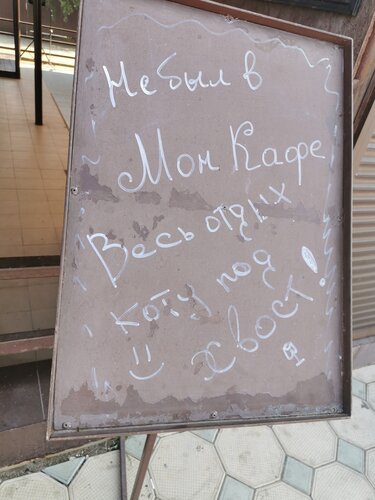 Не был в
Мон Кафе
Весь отдых
коту под
хвост!